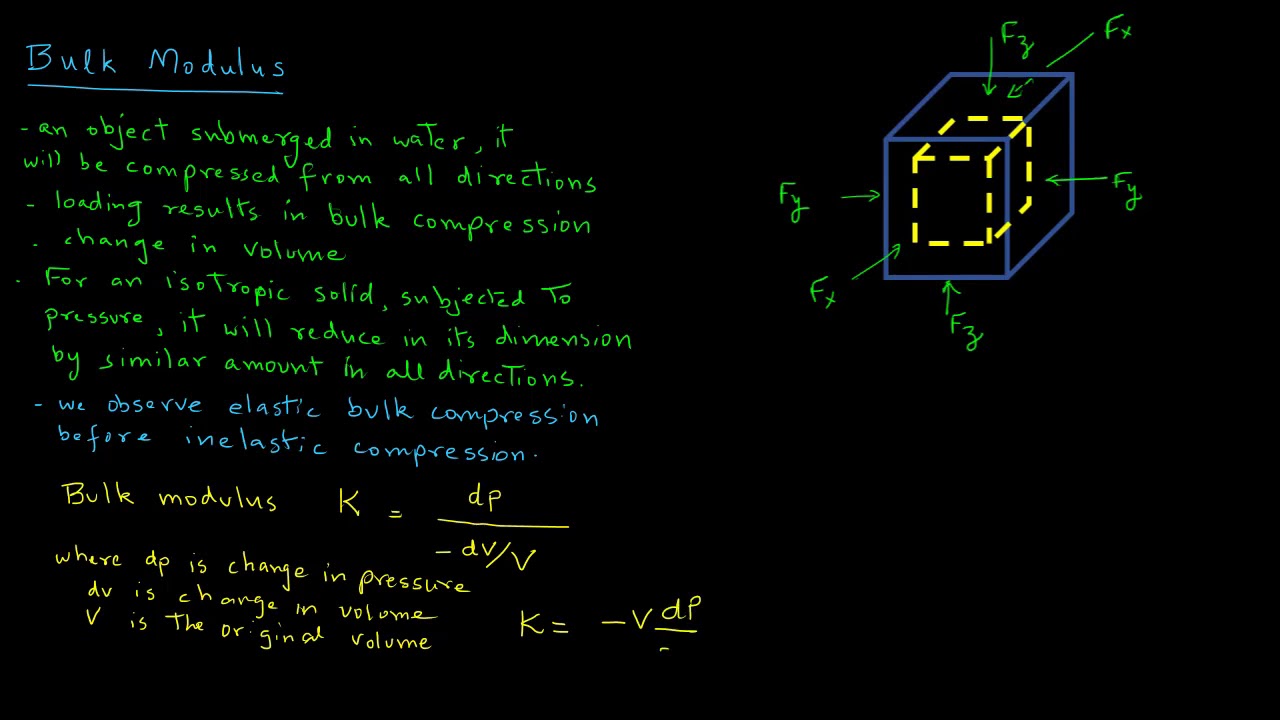 Bulk Modulus
- an object submerged in water, it
will be compressed from all directions
- loading results in bulk compression
. change in volume
. For an isotropic solid, subjected to
pressure, it will reduce in its dimension
by similar amount in all directions.
- we observe elastic bulk compression
before inelastic compression.
Bulk modulus K = dp
- dv/V
where dp is change in pressure
dv is change in volume
V is the original volume
K = -V dP
Fz
Fx
Fy
Fy
Fx
Fz